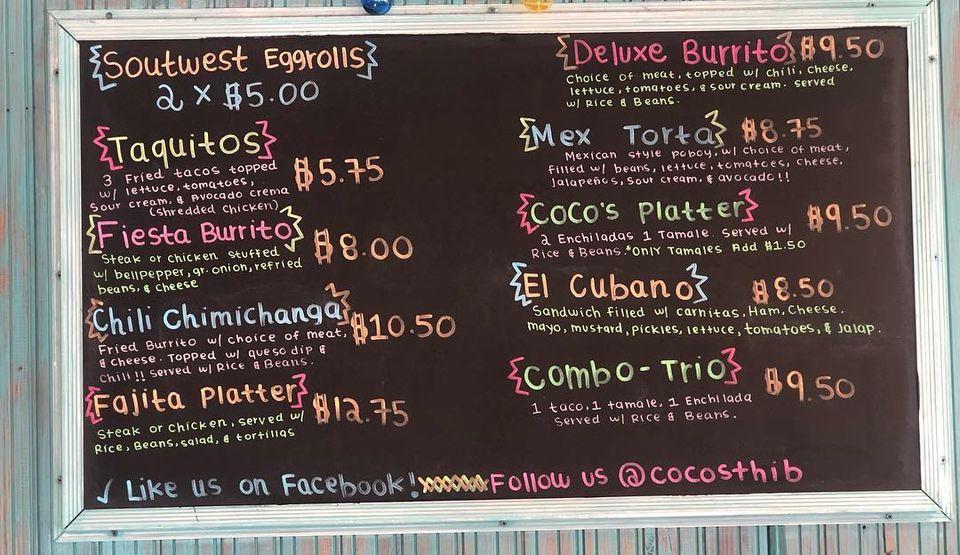 Soutwest Eggrolls
2 x $5.00
Taquitos
3 Fried tacos topped
w/ lettuce, tomatoes,
sour cream, & Avocado crema
(shredded chicken)
$5.75
Fiesta Burrito
Steak or chicken stuffed
w/ bellpepper, gr. onion, refried
beans, & cheese
$8.00
Chili Chimichanga
Fried Burrito w/ choice of meat,
& cheese. Topped w/ queso dip &
Chili!! served w/ Rice & Beans.
$10.50
Fajita Platter
Steak or Chicken, served w/
Rice, Beans, salad, & tortillas
$12.75
Deluxe Burrito $9.50
Choice of meat, topped w/ chili, cheese,
lettuce, tomatoes, & sour cream. served
w/ Rice & Beans.
Mex Torta $8.75
Mexican style poboy, w/ choice of meat,
filled w/ beans, lettuce, tomatoes, cheese,
jalapeños, sour cream, & avocado!!
CoCo's Platter $9.50
2 Enchiladas 1 Tamale. served w/
Rice & Beans. *Only Tamales Add $1.50
El Cubano $8.50
Sandwich filled w/ carnitas, Ham, Cheese.
mayo, mustard, pickles, lettuce, tomatoes, & Jalap.
Combo-Trio $9.50
1 taco, 1 tamale, 1 Enchilada
Served w/ Rice & Beans.
√ Like us on Facebook! xxxxxxx Follow us @cocosthib